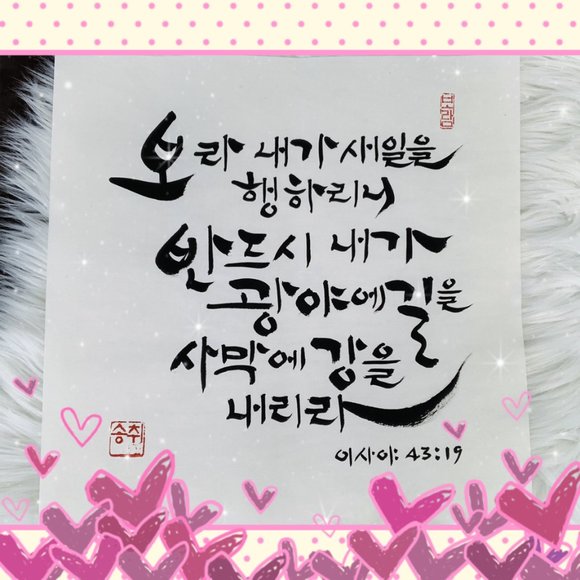 보라 내가 새일을
행하리니
반드시 내가
광야에 길을
사막에 강을
내리라
이사야 43:19
송취